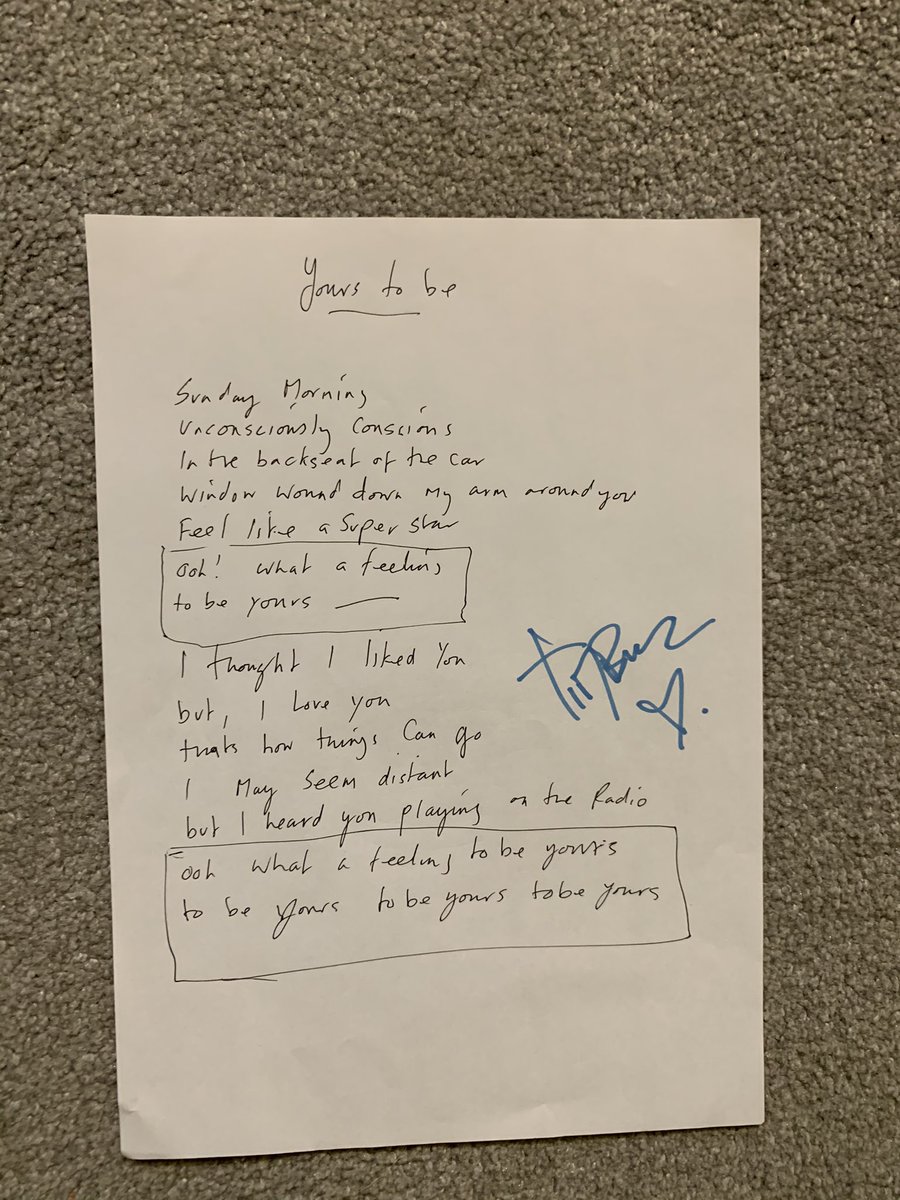 Yours to be
Sunday Morning
Unconsciously Conscious
In the backseat of the car
Window wound down my arm around you
Feel like a Super star
Ooh! what a feeling
to be yours
I thought I liked You
but, I Love you
thats how things Can go
I May Seem distant
but I heard you playing on the Radio
Ooh what a feeling to be yours
to be yours to be yours to be yours